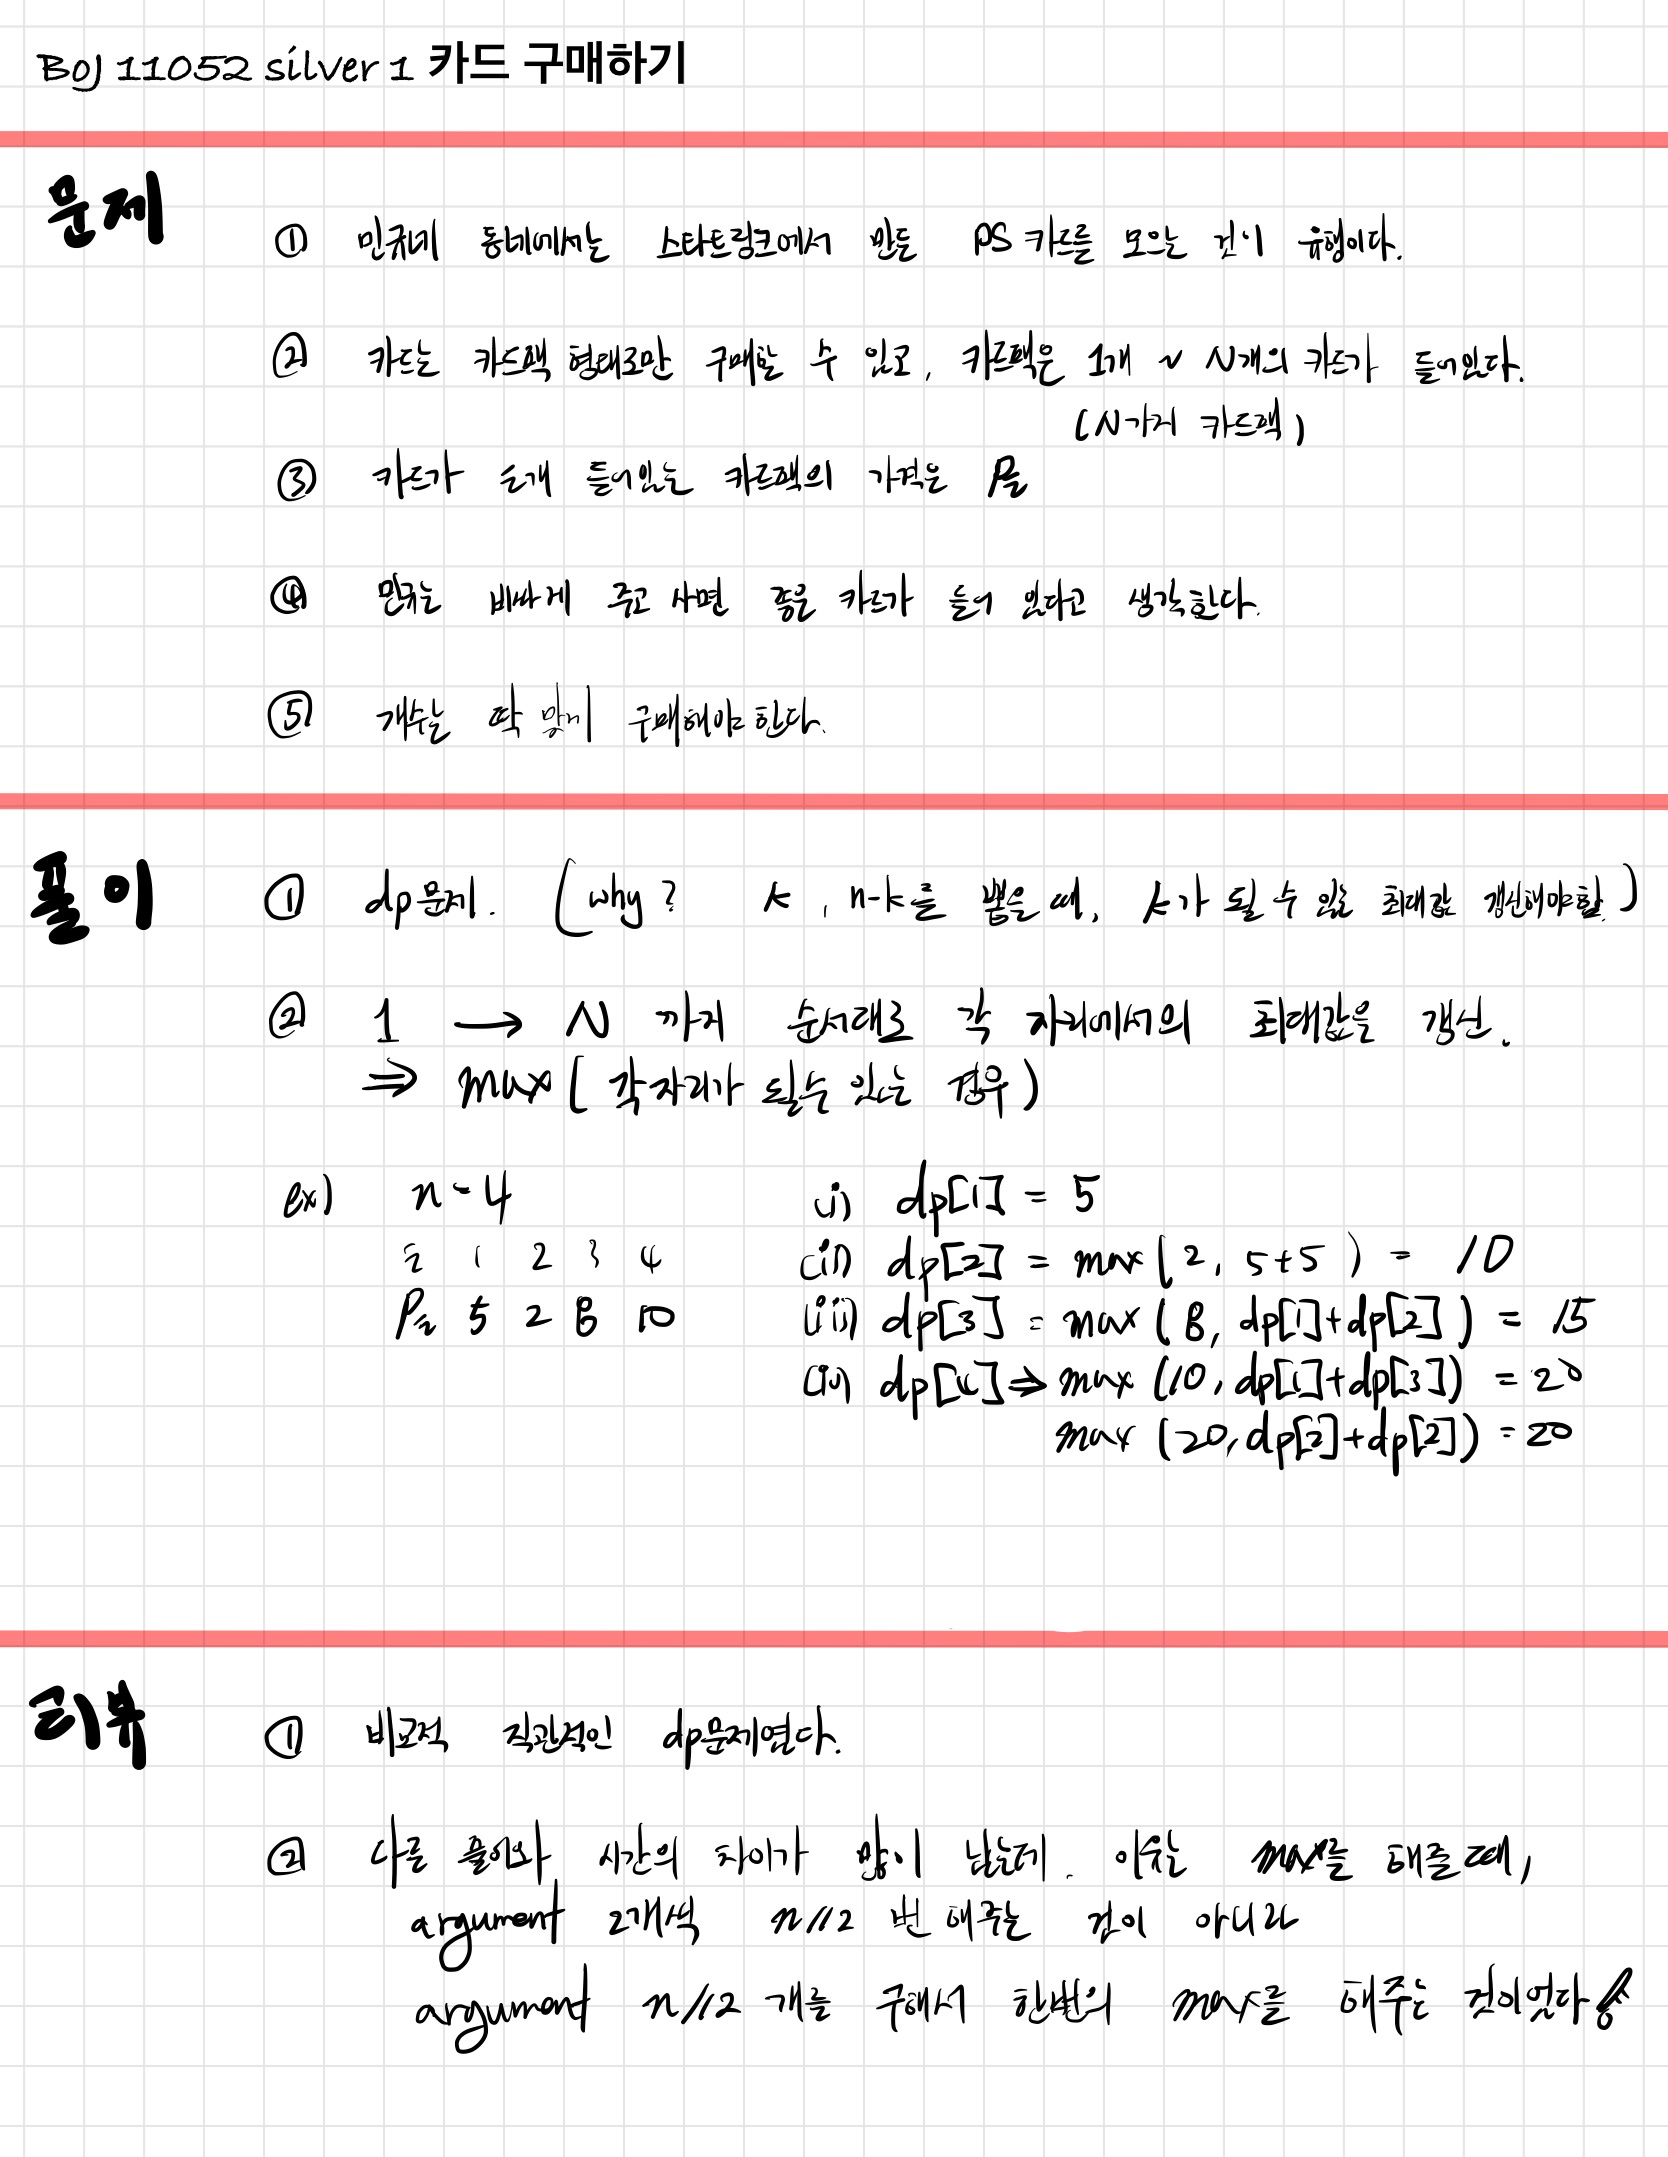 BOJ 11052 silver 1 카드 구매하기
문제
① 민규네 동네에서는 스타트링크에서 만든 PS카드를 모으는 것이 유행이다.
② 카드는 카드팩 형태로만 구매할 수 있고, 카드팩은 1개 ~ N개의 카드가 들어있다.
(N가지 카드팩)
③ 카드가 i개 들어있는 카드팩의 가격은 Pi
④ 민규는 비싸게 주고 사면 좋은 카드가 들어 있다고 생각한다.
⑤ 개수는 딱 맞게 구매해야 한다.
풀이
① dp문제. (why? k, n-k를 뽑을 때, k가 될 수 있는 최대값 갱신해야함.)
② 1 → N 까지 순서대로 각 자리에서의 최대값을 갱신.
⇒ max(각 자리가 될 수 있는 경우)
ex) n = 4
i 1 2 3 4
Pi 5 2 8 10
(i) dp[1] = 5
(ii) dp[2] = max(2, 5+5) = 10
(iii) dp[3] = max(8, dp[1]+dp[2]) = 15
(iv) dp[4] ⇒ max(10, dp[1]+dp[3]) = 20
max(20, dp[2]+dp[2]) = 20
리뷰
① 비교적 직관적인 dp문제였다.
② 다른 풀이와 시간의 차이가 많이 났는데. 이유는 max를 해줄 때,
argument 2개씩 n//2 번 해주는 것이 아니라
argument n//2 개를 구해서 한번의 max를 해주는 것이었다!